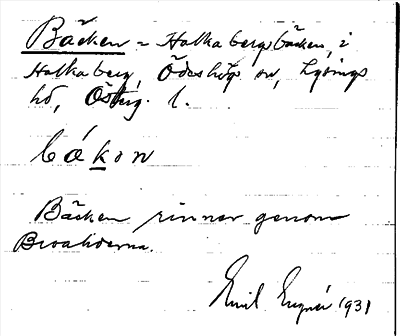 Bäcken = Halkabergsbäcken, i
Halkaberg, Ödeshög sn, Lysings
hd, Österg. l.
bækon
Bäcken rinner genom
Emil 1931